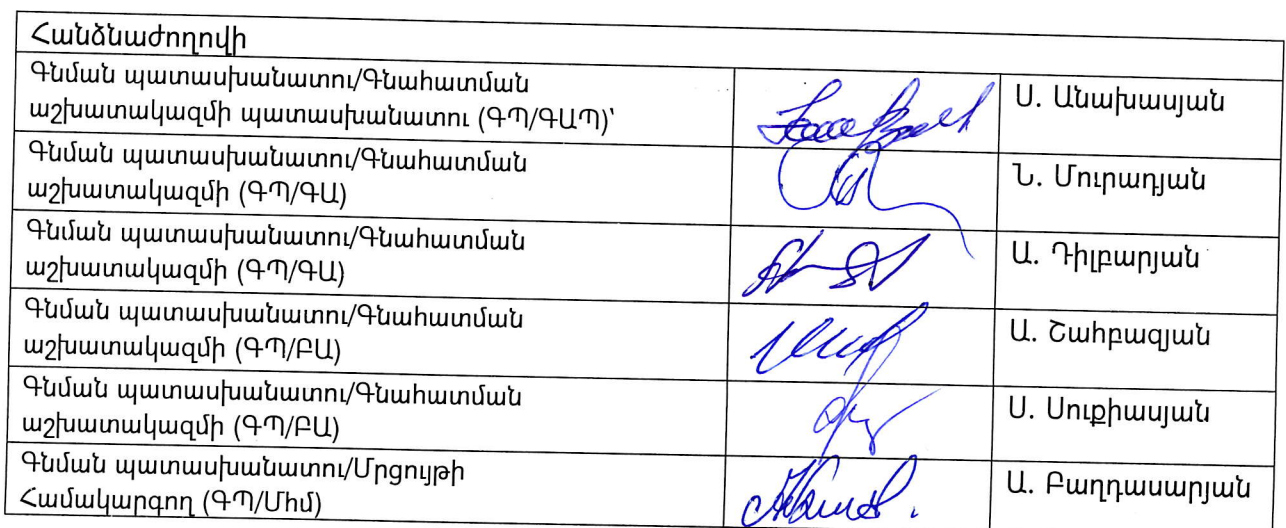 Հանձնաժողովի
Գնման պատասխանատու/Գնահատման
աշխատակազմի պատասխանատու (ԳՊ/ԳԱՊ)՝
Ս. Անախասյան
Գնման պատասխանատու/Գնահատման
աշխատակազմի (ԳՊ/ԳԱ)
Ն. Մուրադյան
Գնման պատասխանատու/Գնահատման
աշխատակազմի (ԳՊ/ԳԱ)
Ա. Դիլբարյան
Գնման պատասխանատու/Գնահատման
աշխատակազմի (ԳՊ/ԲԱ)
Ա. Շահբազյան
Գնման պատասխանատու/Գնահատման
աշխատակազմի (ԳՊ/ԲԱ)
Ս. Սուքիասյան
Գնման պատասխանատու/Մրցույթի
Համակարգող (ԳՊ/Միմ)
Ա. Բաղդասարյան